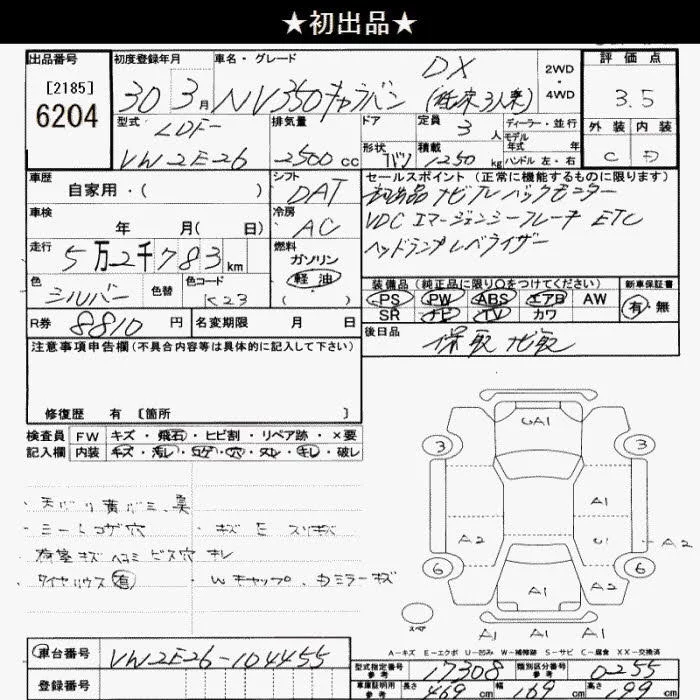 ★初出品★
出品番号 初度登録年月 車名・グレード 評価点
[2185] 6204
30年 3月 NV350キャラバン DX (低床3人乗) 2WD・4WD 3.5
型式 LDF-VW2E26
排気量 2500cc
ドア 形状 バン
定員 3人
積載 1250kg
ディーラー・並行
モデル年式 年
ハンドル 左・右
外装 内装
C D
車歴 自家用・( )
シフト DAT
車検 年 月( 日)
冷房 AC
走行 5万2千783km
燃料 ガソリン 軽油 ( )
色 シルバー 色替 色コード K23
R券 8810円 名変期限 月 日
セールスポイント(正常に機能するものに限ります)
初出品 ナビTV バックモニター
VDC エマージェンシーブレーキ ETC
ヘッドランプレベライザー
装備品(純正品に限り○をつけてください) 新車保証書
PS PW ABS エアB AW 有・無
SR ナビ TV カワ
後日品 保取 ナビ取
注意事項申告欄(不具合内容等は具体的に記入して下さい)
修復歴 有 [箇所 ]
検査員 FW キズ・飛石・ヒビ割・リペア跡・×要
記入欄 内装 キズ・汚レ・コゲ・穴・ヌレ・キレ・破レ
・天バリ黄バミ、臭
・シートコゲ穴 ・キズ E スリキズ
・荷室キズ ヘコミ ビス穴 キレ
・タイヤハウス 有 ・Wキャップ、カミラーキズ
UA1
3 3
A1
A2 U1 A2
6 6
A1 A1
スペア A1 A1 A1
A-キズ E-エクボ U-凹み W-補修跡 S-サビ C-腐食 XX-交換済
車台番号 VW2E26-104455
登録番号
型式指定番号 参考 17308 類別区分番号 参考 0255
車庫証明用 参考 長さ 469cm 幅 169cm 高さ 199cm